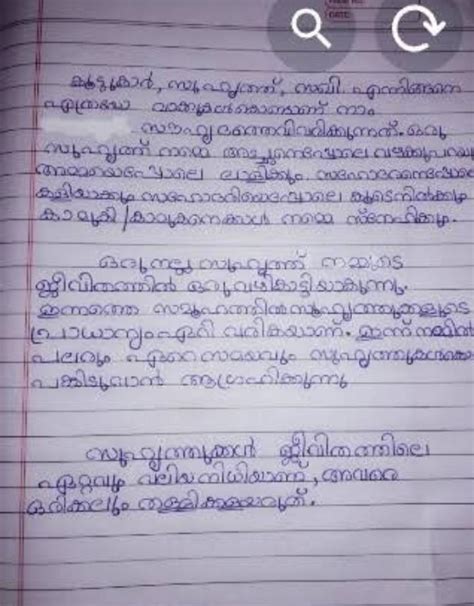 കൂട്ടുകാർ, സുഹൃത്ത്, സഖി എന്നിങ്ങനെ
എത്രയോ വാക്കുകൾകൊണ്ടാണ് നാം
സൗഹൃദത്തെവിവരിക്കുന്നത്. ഒരു
സുഹൃത്ത് നമ്മെ അച്ഛനെപോലെ വഴക്കുപറയു
അമ്മയെപോലെ ലാളിക്കും. സഹോദരനെപോലെ
കളിയാക്കും സഹോദരിയെപോലെ കൂടെനിൽക്കും
കാമുകി/കാമുകനെക്കാൾ നമ്മെ സ്നേഹിക്കും.
ഒരുനല്ല സുഹൃത്ത് നമ്മുടെ
ജീവിതത്തിൻ ഒരു വഴികാട്ടിയാകുന്നു.
ഇന്നത്തെ സമൂഹത്തിൽ സുഹൃത്തുക്കളുടെ
പ്രാധാന്യം ഏറി വരികയാണ്. ഇന്ന് നമ്മിൽ
പലരും ഏറെസമയവും സുഹൃത്തുക്കൾക്കൊ
പങ്കിടുവാൻ ആഗ്രഹിക്കുന്നു
സുഹൃത്തുക്കൾ ജീവിതത്തിലെ
ഏറ്റവും വലിയനിധിയാണ്, അവരെ
ഒരിക്കലും തള്ളിക്കളയരുത്.